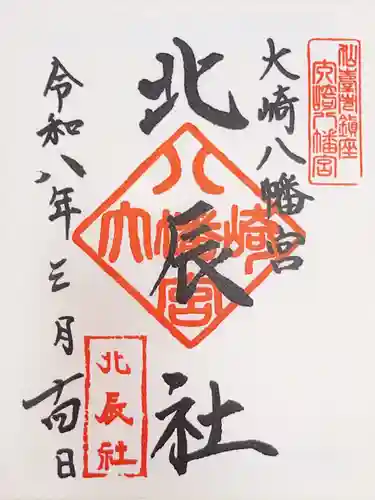 仙臺岩鎮座
大崎八幡宮
大崎八幡宮
北辰社
八
大幡崎
宮
令和八年三月吉日
北辰社